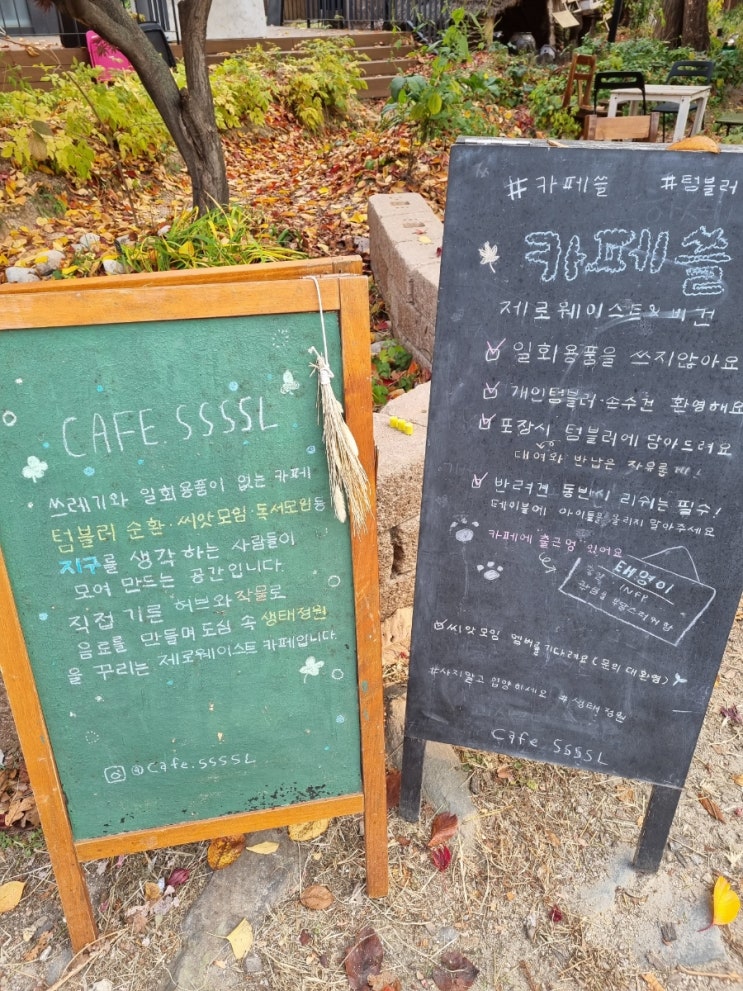 CAFE.SSSSL
쓰레기와 일회용품이 없는 카페
텀블러 순환·씨앗모임·독서모임등
지구를 생각하는 사람들이
모여 만드는 공간입니다.
직접 기른 허브와 작물로
음료를 만들며 도심 속 생태정원
을 꾸리는 제로웨이스트 카페입니다.
@cafe.ssssl
#카페쓸 #텀블러
카페쓸
제로웨이스트& 비건
일회용품을 쓰지않아요
개인텀블러·손수건 환영해요
포장시 텀블러에 담아드려요
대여와 반납은 자유롭게!
반려견 동반시 리쉬는 필수!
테이블에 아이들을 올리지 말아주세요
카페에 출근멍 있어요
태영이
INFP
씨앗모임 멤버를 기다려요 (문의 대환영)
#사지말고 입양하세요 #생태정원
Cafe.SSSSL